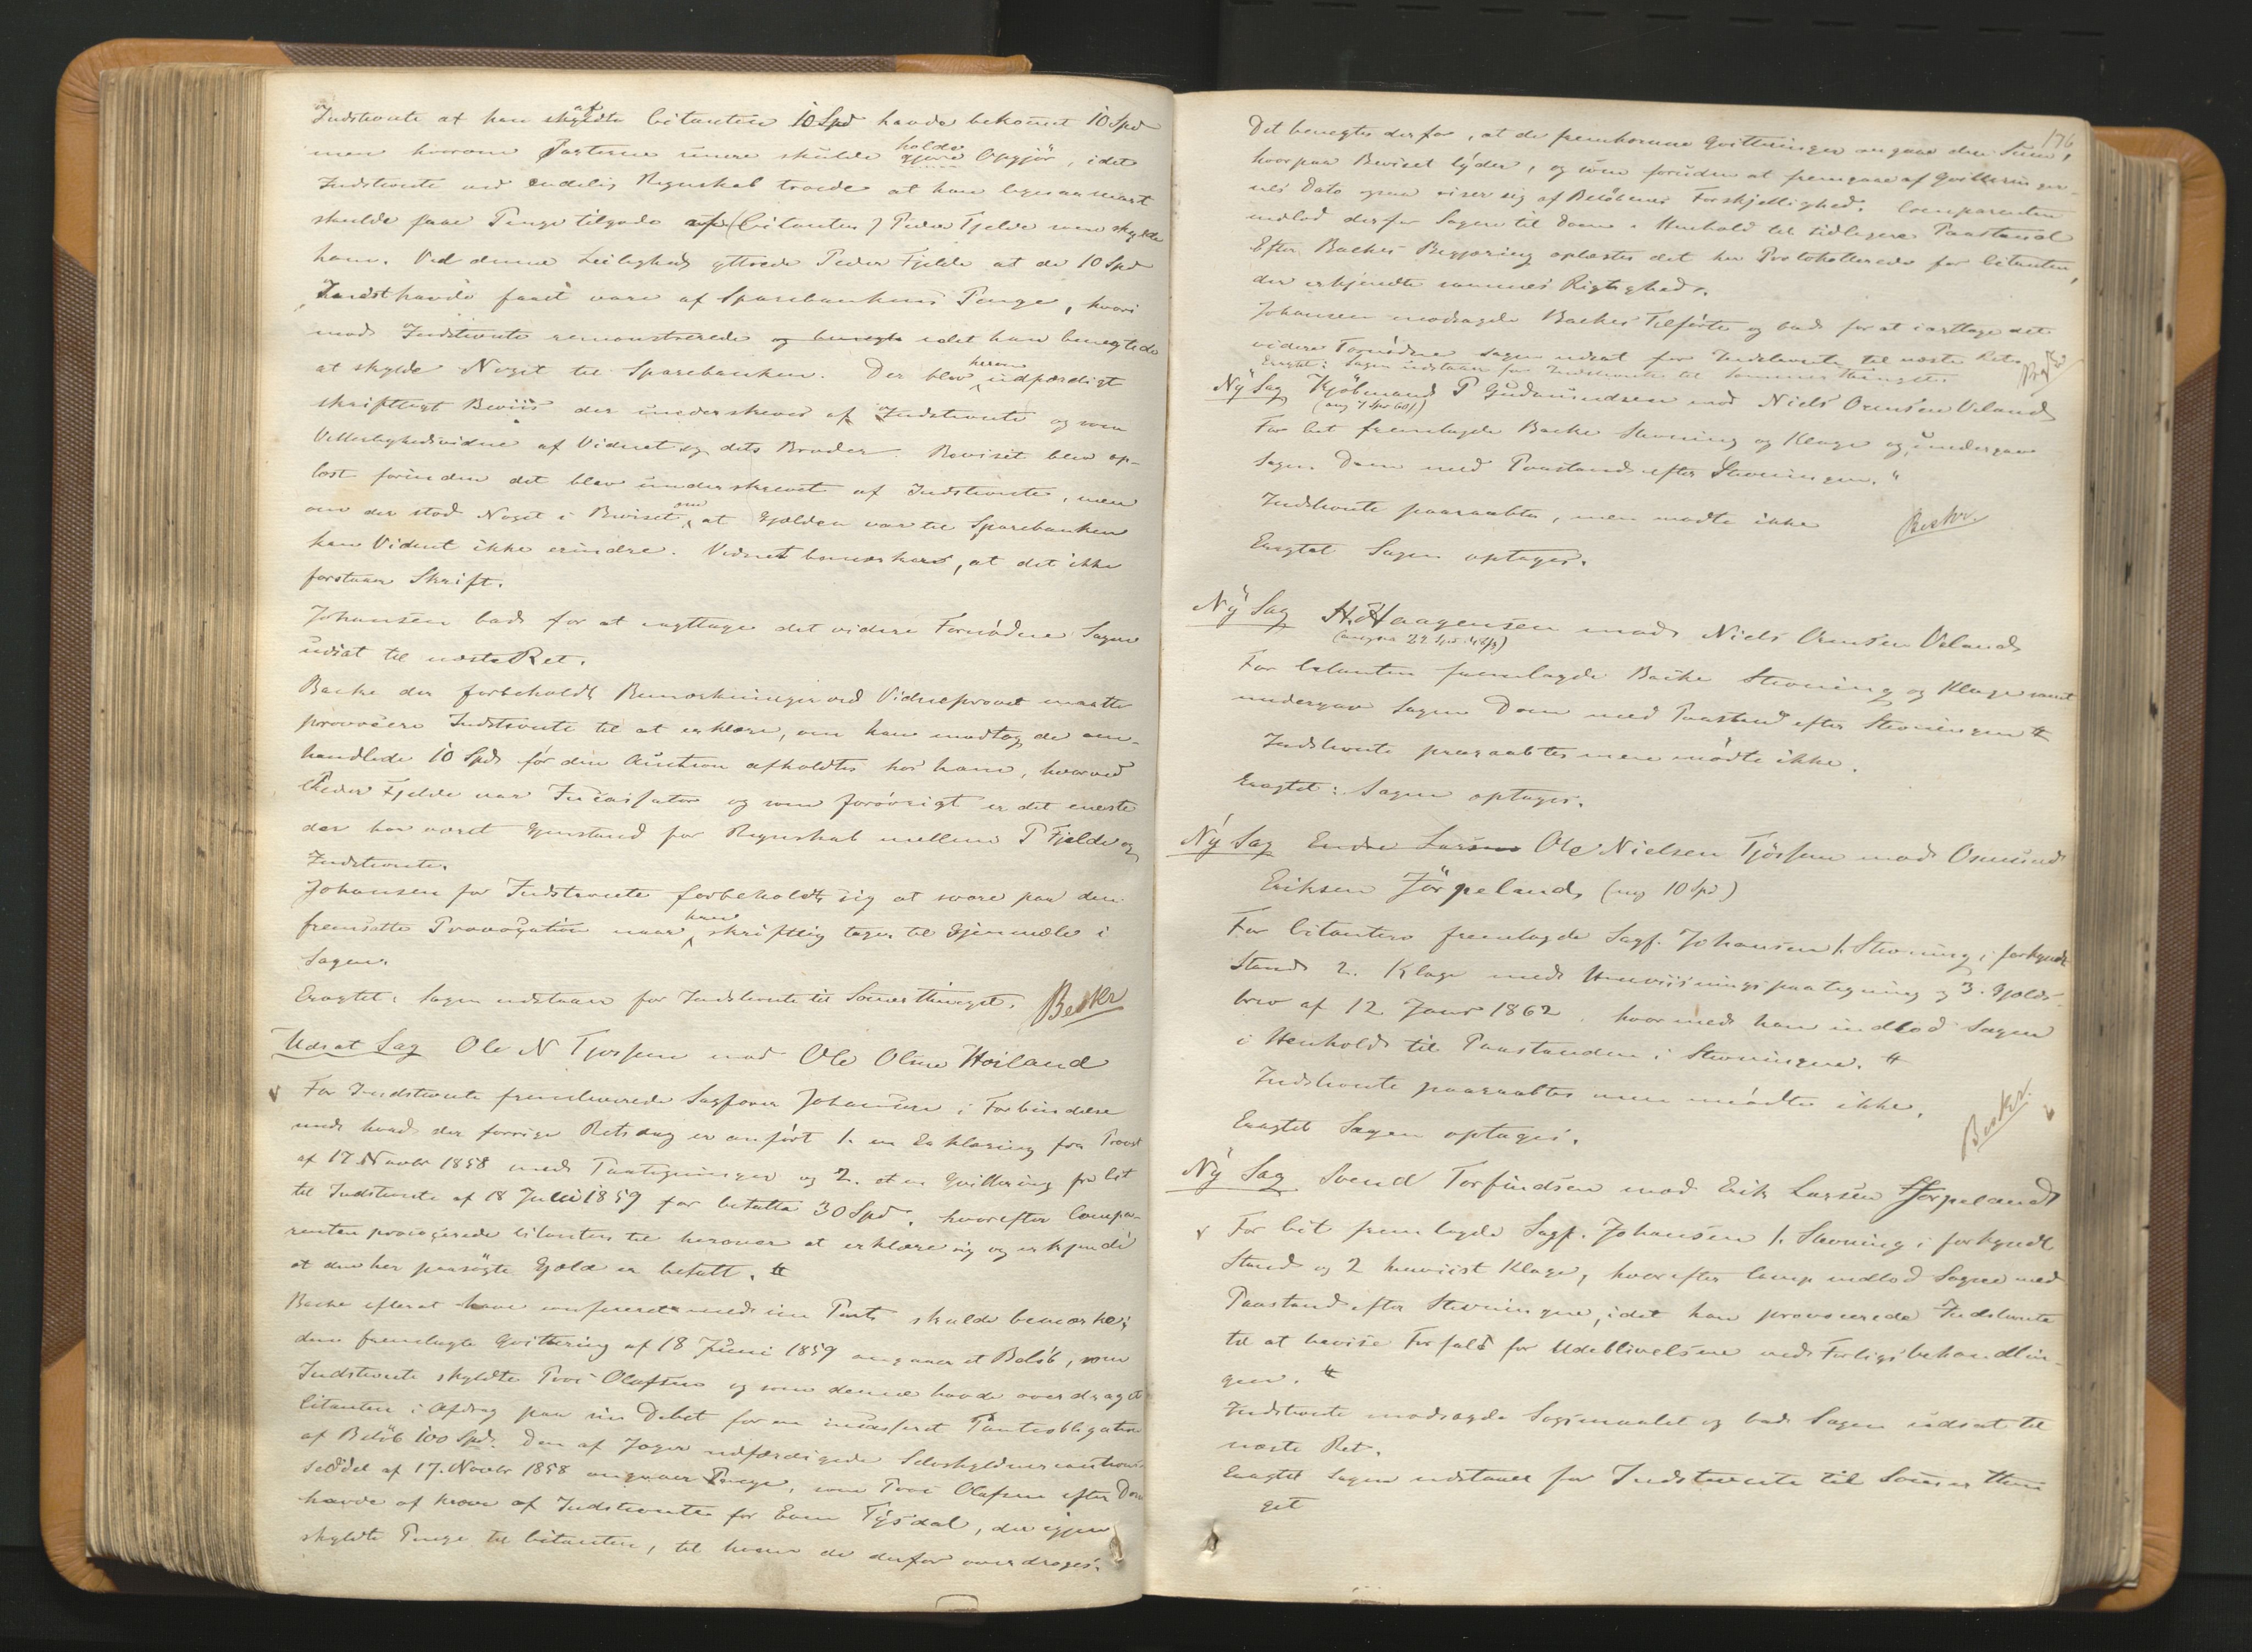 Indstevnte at han af Citanten 10 Spd havde bekomet 10 Spd
men hvorom Parterne senere skulde holde Opgjör, idet
Indstevnte ved endelig Regnskab troede at han ligesaa snart
skulde faae Penge tilgode af (Citanten) Peder Fjelde som skyldte
ham. Ved denne Leilighed yttrede Peder Fjelde at de 10 Spd
Indst havde faaet vare af Sparebankens Penge, hvori
mod Indstevnte remonstrerede og benegte idet han benegtede
at skylde Noget til Sparebanken. Der blev herom udfærdiget
skriftligt Beviis der underskreves af Indstevnte og som
Vitterlighedsvidne af Vidnet og dets Broder. Beviset blev op-
læst forinden det blev underskrevet af Indstevnte, men
om der stod Noget i Beviset om at Gjælden var til Sparebanken
kan Vidnet ikke erindre. Vidnet bemærker, at det ikke
forstaaer Skrift.
Johansen bad for at iagttage det videre Fornödne Sagen
udsat til næste Ret.
Backe der forbeholdt Bemærkninger ved Vidneprovet maatte
provocere Indstevnte til at erklære, om han modtog de om-
handlede 10 Spd för den Auktion afholdtes hos ham, hvorved
Peder Fjelde var Incassator og som forövrigt er det eneste
der har været Gjenstand for Regnskab mellem P Fjelde og
Indstevnte.
Johansen for Indstevnte forbeholdt sig at svare paa den
fremsatte Provocation naar han skriftlig tager til Gjenmæle i
Sagen.
Eragtet: Sagen udstaaer for Indstevnte til Somerthinget. Beskr
Udsat Sag Ole N Tjossem mod Ole Olsen Höiland
For Indstevnte fremleverede Sagförer Johansen i Forbindelse
med hvad der forrige Retsdag er anfört 1. en Erklæring fra Troest
af 17 Novbr 1858 med Paategninger og 2. et en Qvittering fra Cit
til Indstevnte af 18 Juli 1859 for betalte 30 Spd, hvorefter Compa-
renten provocerede Citanten til herover at erklære sig og erkjende
at den her paasögte Gjæld er betalt.
Backe efterat have confereret med sin Part skulde bemærke:
den fremlagte Qvittering af 18 Juni 1859 angaaer et Belöb, som
Indstevnte skyldte Troi Olafsen og som denne havde overdraget
Citanten i Afdrag paa sin Debet for en incasseret Panteobligation
af Belöb 100 Spd. Den af Joger udfærdigede Selvskyldnercautions
seddel af 17. Novbr 1858 angaaer Penge, som Troi Olafsen efter Dom
havde at kræve af Indstevnte for Even Tysdal, der igjen
skyldte Penge til Citanten, til hvem de derfor overdroges.
176
Det benegtes derfor, at de fremkomne Qvitteringer angaae den Sum,
hvorpaa Beviset lyder, og som foruden at fremgaae af Qvitteringer-
nes Dato ogsaa viser sig af Belöbenes Forskjellighed. Comparenten
indlod derfor Sagen til Doms i Henhold til tidligere Paastand
Efter Backes Begjæring oplæstes det her Protokollerede for Citanten,
der erkjendte sammes Rigtighed.
Johansen modsagde Backes Tilförte og bad for at iagttage det
videre Fornödne Sagen udsat for Indstevnte til næste Ret.
Eragtet: Sagen udstaaer for Indstevnte til Sommerthinget
Ny Sag Kjöbmand P Gudmundsen mod Niels Ormsen Veland
For Cit fremlagde Backe Stevning og Klage og undergav
Sagen Dom med Paastand efter Stevningen."
Indstevnte paaraabtes, men mødte ikke
Beskr
Eragtet Sagen optages.
Ny Sag H. Haagensen mod Niels Ormsen Veland
For Citanten fremlagde Backe Stevning og Klage samt
undergav Sagen Dom med Paastand efter Stevningen
Indstevnte paaraabtes men mödte ikke.
Eragtet: Sagen optages.
Ny Sag Endre Larsen Ole Nielsen Tjössem mod Osmund
Eriksen Jörpeland, (ang 10 Spd)
For Citanten fremlagde Sagf. Johansen 1. Stevning i forkyndt
Stand 2. Klage med Henviisningspaategning og 3. Gjelds-
brev af 12 Janr 1862, hvormed han indlod Sagen
i Henhold til Paastanden i Stevningen.
Indstevnte paaraabtes men mödte ikke.
Beskr.
Eragtet Sagen optages.
Ny Sag Svend Torfindsen mod Erik Larsen Jörpeland
For Cit fremlagde Sagf. Johansen 1. Stevning i forkyndt
Stand og 2 henviist Klage, hvorefter Comp indlod Sagen med
Paastand efter Stevningen, idet han provocerede Indstevnte
til at bevise Forfald for Udeblivelsen ved Forligsbehandlin-
gen.
Indstevnte modsagde Sögsmaalet og bad Sagen udsat til
næste Ret.
Eragtet Sagen udstaaer for Indstevnte til Somerthin
get